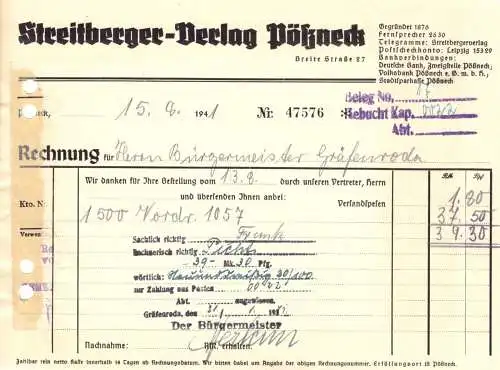 Streitberger-Verlag Pößneck
Breite Straße 27
Gegründet 1876
Fernsprecher 2630
Telegramme: Streitbergerverlag
Postscheckkonto: Leipzig 15329
Bankverbindungen:
Deutsche Bank, Zweigstelle Pößneck;
Volksbank Pößneck e.G.m.b.H.;
Stadtsparkasse Pößneck
neck, 15. 8. 1941 Nr. 47576
Beleg No. 17
Gebucht Kap.
Abt.
Rechnung für Herrn Bürgermeister Gräfenroda
Wir danken für Ihre Bestellung vom 13.8. durch unseren Vertreter, Herrn
RM Pf
Kto. No. und übersenden Ihnen anbei: Versandspesen 1.80
1 500 Vordr. 1057 37 50
Verwen 39.30
Sachlich richtig
Rechnerisch richtig
-39- Mk. 30 Pfg.
wörtlich: Neununddreißig 30/100
zur Zahlung aus Posten 0022
Abt. angewiesen.
Gräfenroda, den
Der Bürgermeister
Nachnahme: erhalten.
Zahlbar rein netto Kasse innerhalb 14 Tagen ab Rechnungsdatum. Wir bitten dabei um Angabe der obigen Rechnungsnummer. Erfüllungsort ist Pößneck.